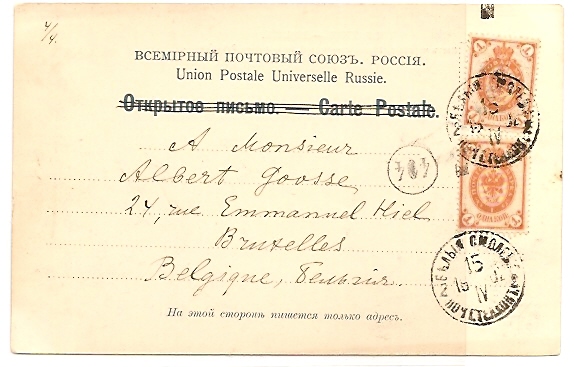 4/4.
ВСЕМІРНЫЙ ПОЧТОВЫЙ СОЮЗЪ. РОССІЯ.
Union Postale Universelle Russie.
Открытое письмо. — Carte Postale.
A Monsieur
Albert Goosse
24, rue Emmanuel Hiel
Bruxelles
Belgique, Бельгія.
На этой сторонѣ пишется только адресъ.
1 1
1 1
15
IV
БѢЛЫЙ СМОЛЕН.
15
IV